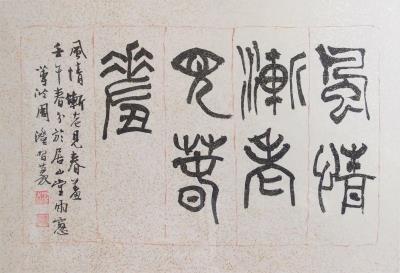 風情
漸老
見春
羞
風情漸老見春羞
壬午春分於居山堂雨窗
周澄